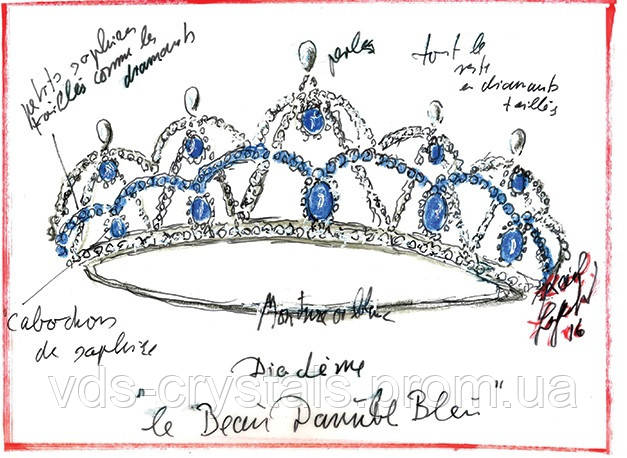 petits saphires
taillés comme les
diamants
perles
tout le
reste
en diamants
taillés
cabochons
de saphire
Monture or blanc
Diadème
"le Beau Danube Bleu"
16
vds-crystals.prom.ua